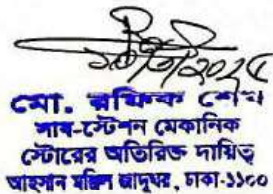 ১৩/৩/২০২৫
মো. রফিক শেখ
সাব-স্টেশন মেকানিক
স্টোরের অতিরিক্ত দায়িত্ব
আহসান মঞ্জিল জাদুঘর, ঢাকা-১১০০